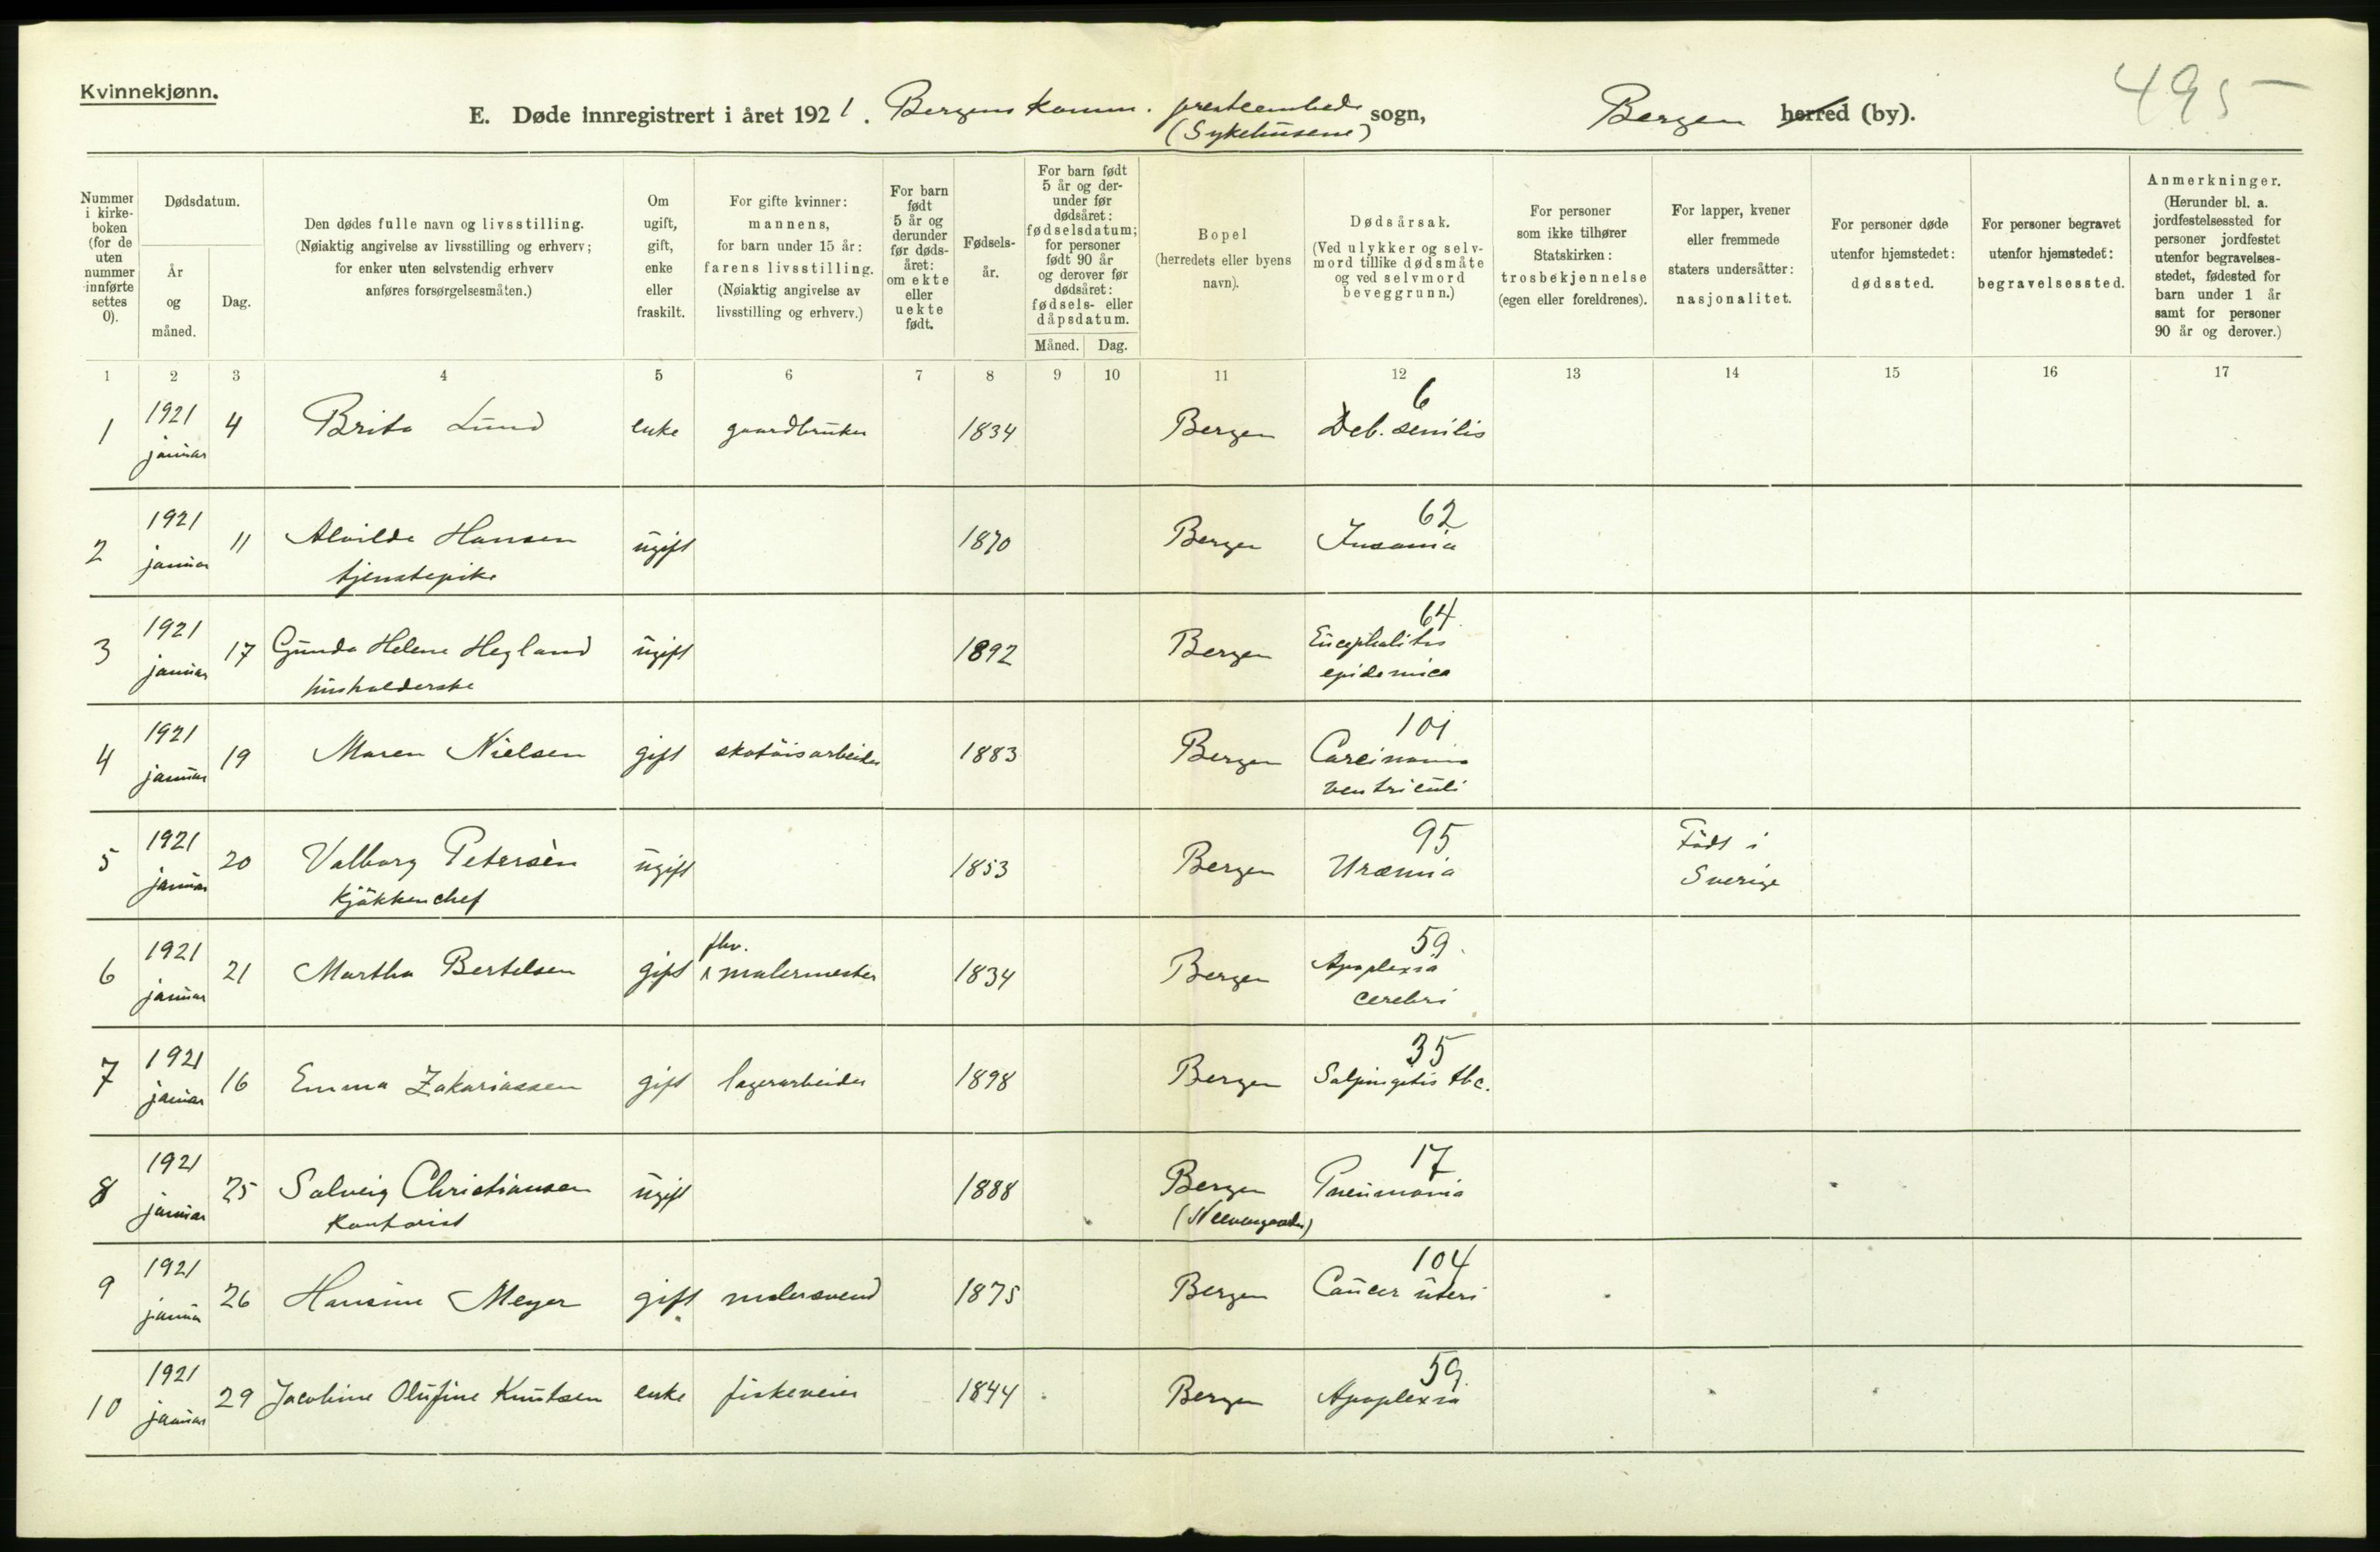 Kvinnekjønn.
495
E. Døde innregistrert i året 1921. Bergens komm. presteembede sogn, Bergen herred (by).
(Sykehusene)
Nummer i kirkeboken (for de uten nummer innførte settes 0).
Dødsdatum.
År og måned.
Dag.
Den dødes fulle navn og livsstilling.
(Nøiaktig angivelse av livsstilling og erhverv;
for enker uten selvstendig erhverv
anføres forsørgelsesmåten.)
Om ugift, gift, enke eller fraskilt.
For gifte kvinner:
mannens,
for barn under 15 år:
farens livsstilling.
(Nøiaktig angivelse av
livsstilling og erhverv.)
For barn født 5 år og derunder før dødsåret: om ekte eller uekte født.
Fødselsår.
For barn født 5 år og derunder før dødsåret: fødselsdatum; for personer født 90 år og derover før dødsåret: fødsels- eller dåpsdatum.
Måned. Dag.
Bopel
(herredets eller byens
navn).
Dødsårsak.
(Ved ulykker og selvmord tillike dødsmåte og ved selvmord beveggrunn.)
For personer
som ikke tilhører
Statskirken:
trosbekjennelse
(egen eller foreldrenes).
For lapper, kvener
eller fremmede
staters undersåtter:
nasjonalitet.
For personer døde
utenfor hjemstedet:
dødssted.
For personer begravet
utenfor hjemstedet:
begravelsessted.
Anmerkninger.
(Herunder bl. a.
jordfestelsessted for
personer jordfestet
utenfor begravelses-
stedet, fødested for
barn under 1 år
samt for personer
90 år og derover.)
1 2 3 4 5 6 7 8 9 10 11 12 13 14 15 16 17
1 1921 januar 4 Brita Lund enke gaardbruker 1834 Bergen 6 Deb. senilis
2 1921 januar 11 Alvilde Hansen ugift 1870 Bergen 62 Insania
tjenstepike
3 1921 januar 17 Gunda Helene Hegland ugift 1892 Bergen 64 Encephalitis epidemica
husholderske
4 1921 januar 19 Maren Nielsen gift skotöisarbeider 1883 Bergen 101 Carcinoma ventriculi
5 1921 januar 20 Valborg Petersen ugift 1853 Bergen 95 Uræmia Født i Sverige
Kjökkenchef
6 1921 januar 21 Martha Bertelsen gift fhv. malermester 1834 Bergen 59 Apoplexia cerebri
7 1921 januar 16 Emma Zakariassen gift lagerarbeider 1898 Bergen 35 Salpingitis tbc.
8 1921 januar 25 Solveig Christiansen ugift 1888 Bergen 17 Pneumonia
Kontorist
9 1921 januar 26 Hansine Meyer gift malersvend 1875 Bergen 104 Cancer uteri
10 1921 januar 29 Jacobine Olufine Knutsen enke fiskeveier 1844 Bergen 59 Apoplexia